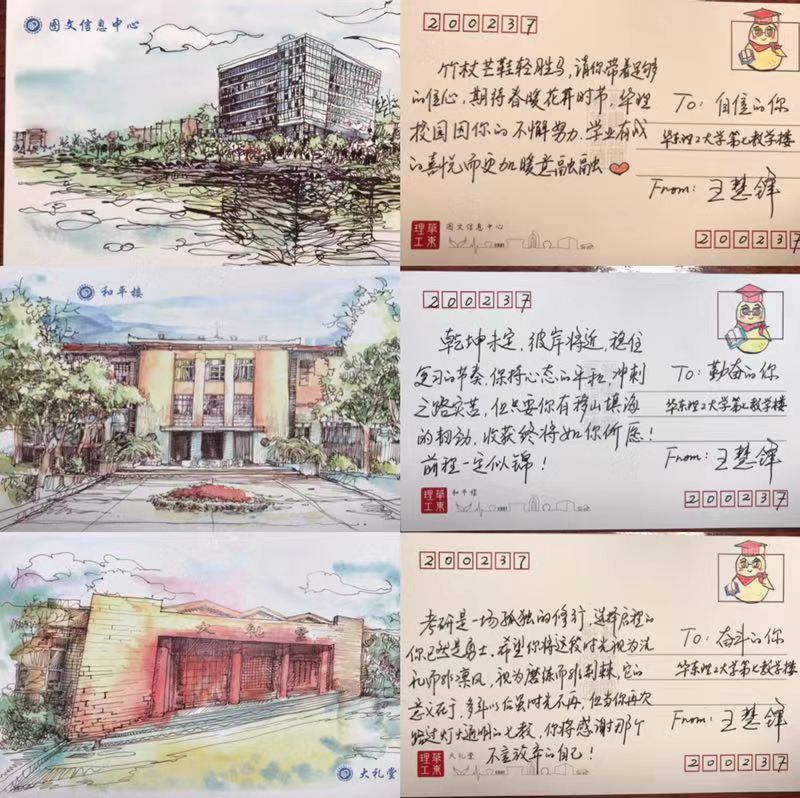 图文信息中心
200237
竹杖芒鞋轻胜马，请你带着足够
的信心，期待春暖花开时节，华理
校园因你的不懈努力、学业有成
的喜悦而更加暖意融融
To: 自信的你
华东理工大学第七教学楼
From: 王慧锋
华东理工
图文信息中心
200237
和平楼
200237
乾坤未定，彼岸将近，稳住
复习的节奏，保持心态的平和，冲刺
之路实苦，但只要你有移山填海
的韧劲，收获终将如你所愿！
前程一定似锦！
To: 勤奋的你
华东理工大学第七教学楼
From: 王慧锋
华东理工
和平楼
200237
大礼堂
大礼堂
200237
考研是一场孤独的修行，选择启程的
你已然是勇士，希望你将这段时光视为洗
礼而非凛风，视为磨练而非荆棘，它的
意义在于，多年以后虽时光不再，但当你再次
路过灯火通明的七教，你将感谢那个
不言放弃的自己！
To: 奋斗的你
华东理工大学第七教学楼
From: 王慧锋
华东理工
大礼堂
200237